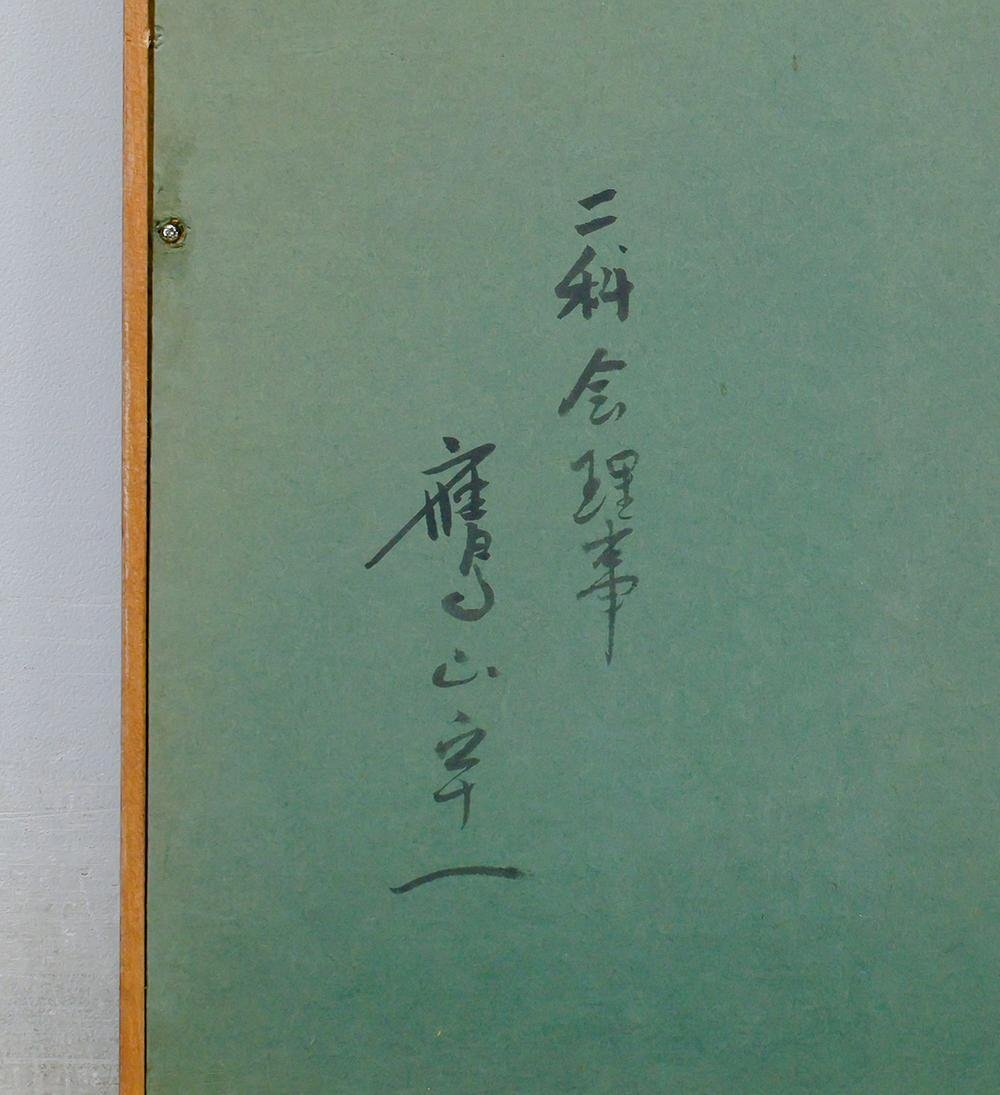 二科会理事
鷹山宇一